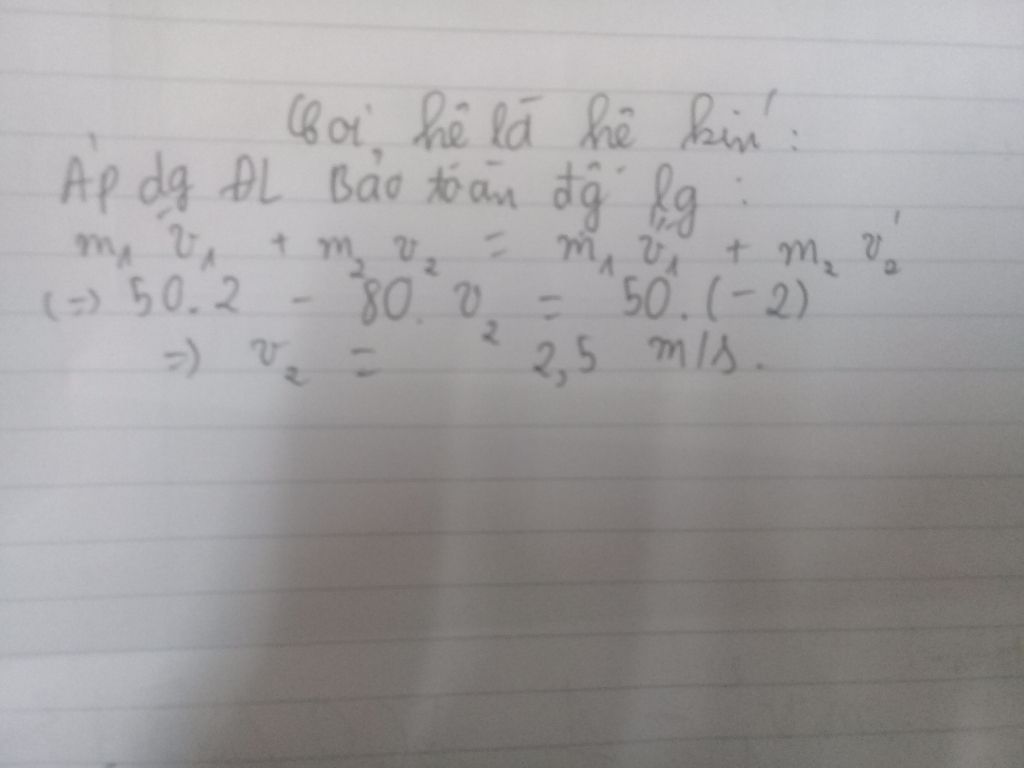 Coi hệ là hệ kín :
Áp dg ĐL Bảo toàn đg lg :
m₁ v₁ + m₂ v₂ = m₁ v₁' + m₂ v₂'
(=) 50.2 - 80. v₂ = 50.(-2)
=) v₂ = 2,5 m/s.